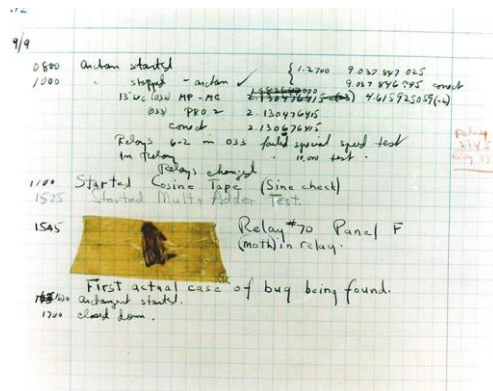 9/9
0800 antan started { 1.2700 9.037 847 025
1000 " stopped - antan ✓ 9.037 846 995 conect
13" uc (032) MP - MC 2.130476415 (-3) 4.615925059(-2)
(033) PRO 2 2.130476415
conect 2.130676415
Relays 6-2 in 033 failed special speed test
in Relay " 10.000 test .
Relays changed
1100 Started Cosine Tape (Sine check)
1525 Started Mult+ Adder Test.
1545 Relay #70 Panel F
(moth) in relay.
First actual case of bug being found.
1630 antangent started.
1700 closed down .
Relay